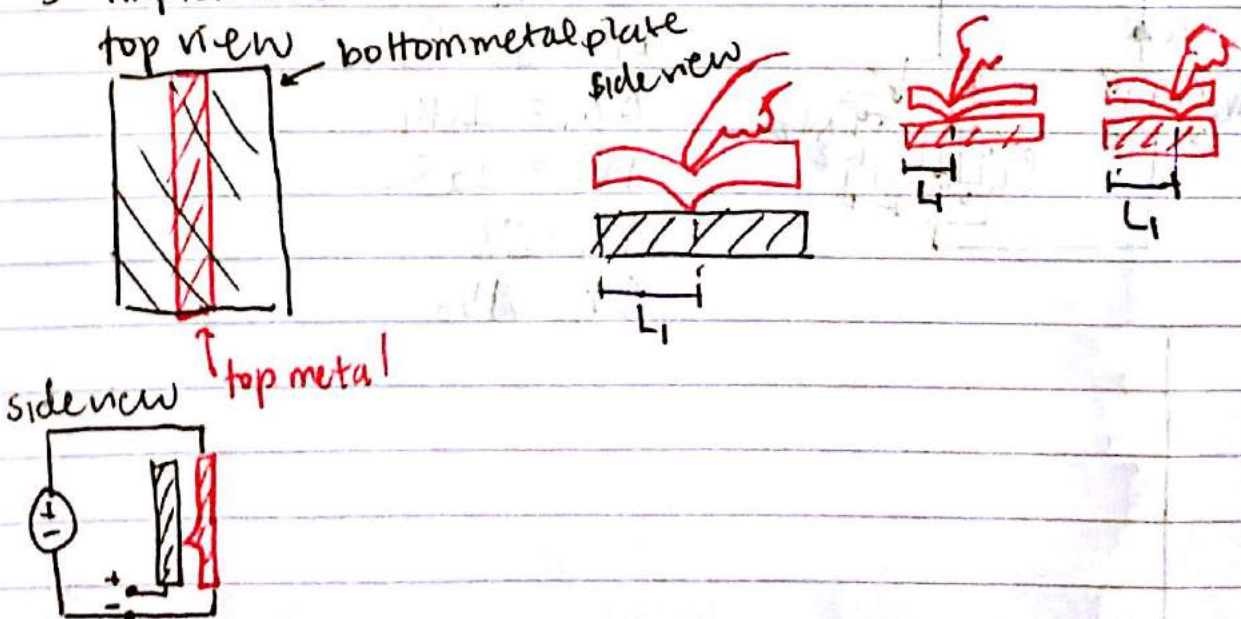 top view
bottom metal plate
side view
L₁
L₁
L₁
top metal
side view
+
-
+
-